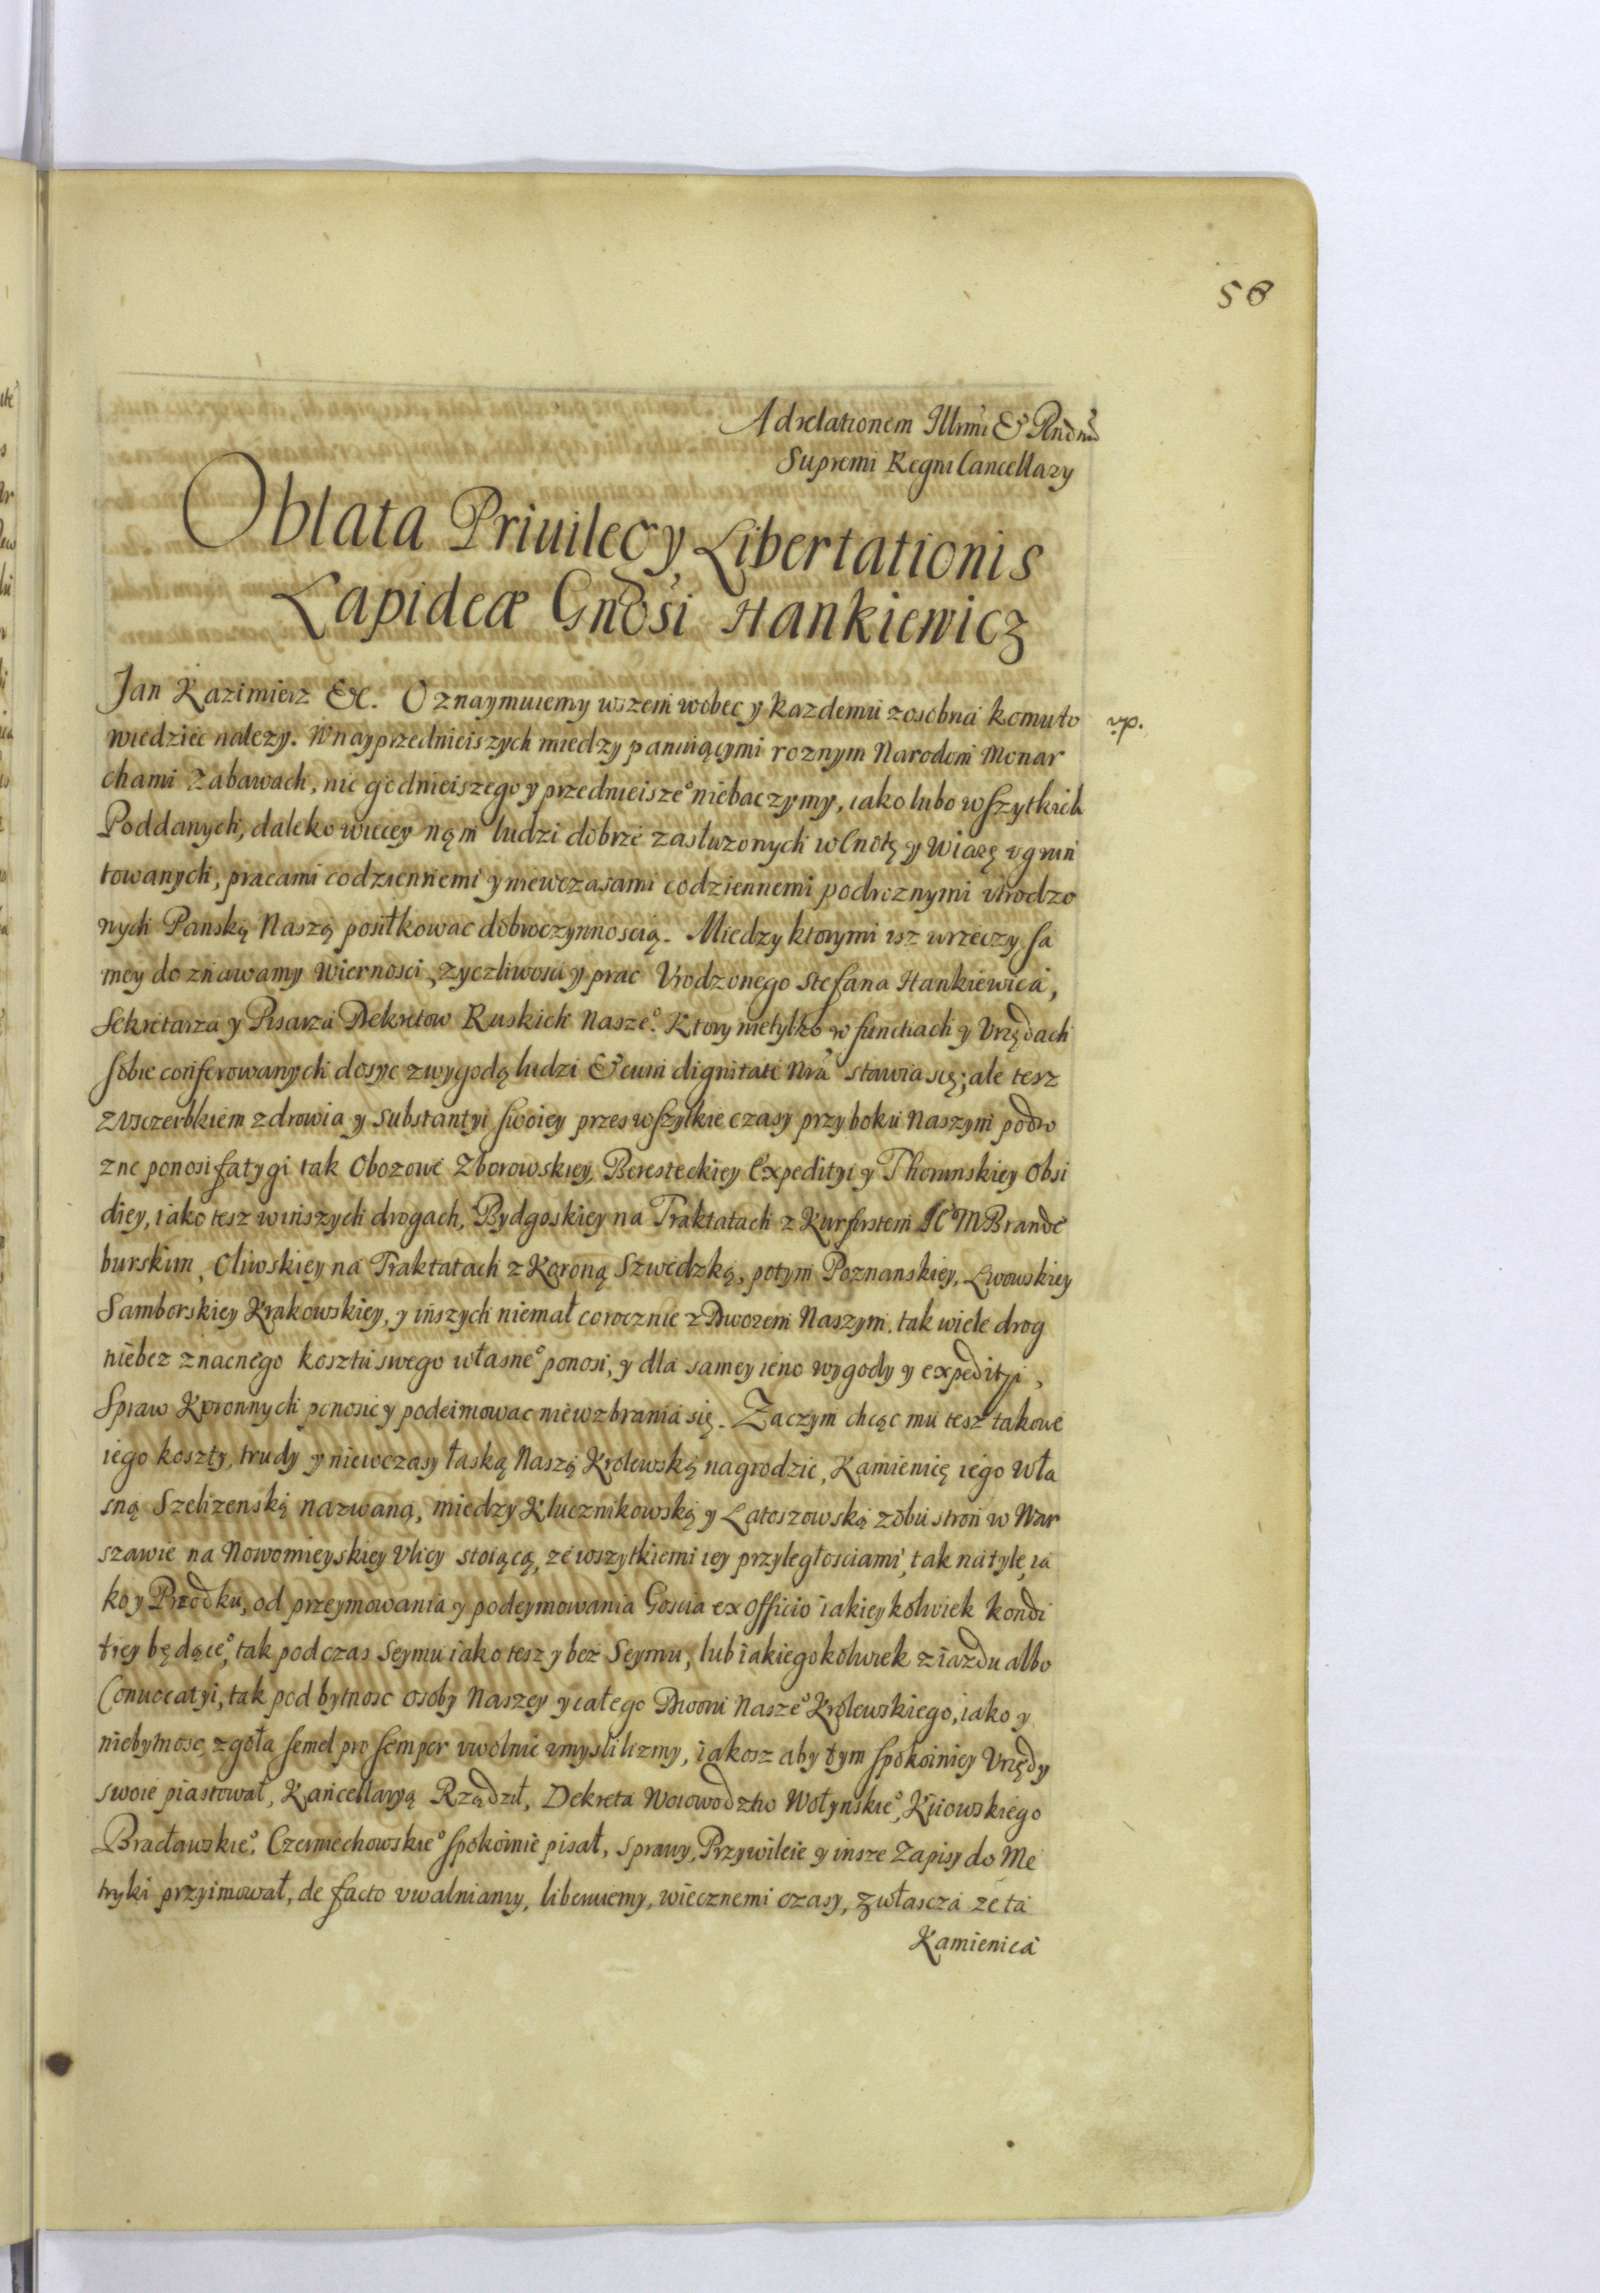 58
Ad relationem Illrmi & Rndmi
Supremi Regni Cancellary
Oblata Priuilegy Libertationis
Lapideæ Gnosi Hankiewicz
Jan Kazimierz &c. Oznaymuiemy wszem wobec y kazdemu zosobna komu to
wp.
wiedziec nalezy. W nayprzednieiszych miedzy panuiącymi roznym Narodom Monar
chami Zabawach, nic godnieiszego y przednieisze° niebaczymy, iako lubo wszytkich
Poddanych, daleko wiecey nąm ludzi dobrze zasłuzonych w Cnotę y Wiarę vgrun
towanych, pracami codziennemi y niewczasami codziennemi podroznymi vtrodzo
nych Pańską Naszą posiłkowac dobroczynnoscią. Miedzy ktorymi isz w rzeczy sa
mey doznawamy wiernosci, zyczliwosci y prac Vrodzonego Stefana Hankiewica,
Sekretarza y Pisarza Dekretow Ruskich Nasze°. Ktory nietylko w functiach y Vrzędach
sobie conferowanych dosyc z wygodą ludzi & cum dignitate Nra stawia się; ale tesz
z vsczerbkiem zdrowia y substantyi swoiey przes wszytkie czasy przy boku Naszym podro
zne ponosi fatygi tak Obozowe Zborowskiey, Beresteckiey Expedityi y Thorunskiey Obsi
diey, iako tesz w inszych drogach, Bydgoskiey na Traktatach z Kurfirstem IC°M Brande
burskim, Oliwskiey na Traktatach z Koroną Szwedzką, potym Poznanskiey, Lwowskiey
Samborskiey Krakowskiey, y inszych niemał corocznie z Dworem Naszym. tak wiele drog
niebez znacnego kosztu swego własne° ponosi, y dla samey ieno wygody y expedityi,
Spraw Koronnych ponosic y podeimowac niewzbrania się. Zaczym chcąc mu tesz takowe
iego koszty, trudy y niewczasy łaską Naszą Krolewską nagrodzic, Kamienicę iego wła
sną Szelizenską nazwaną, miedzy Klucznikowską y Latoszowską z obu stron w War
szawie na Nowomieyskiey Vlicy stoiącą, ze wszytkiemi iey przyległosciami, tak na tyle, ia
ko y Przodku, od przeymowania y podeymowania Goscia ex officio iakieykolwiek kondi
tiey będące°, tak podczas Seymu iako tesz y bez Seymu, lub iakiegokolwiek ziazdu albo
Conuocatyi, tak pod bytnosc osoby Naszey y całego Dworu Nasze° Krolewskiego, iako y
niebytnosc, zgoła semel pro semper vwolnic vmyslilizmy, iakosz aby tym spokoiniey Vrzędy
swoie piastował, Kancellaryą Rządził, Dekreta Woiowodztw Wołynskie°, Kiiowskiego
Bracławskie°. Czerniechowskie° spokoinie pisał, sprawy, Przywileie y insze Zapisy do Me
tryki przyimował, de facto vwalniamy, liberuiemy, wiecznemi czasy, zwłascza ze ta
Kamienica